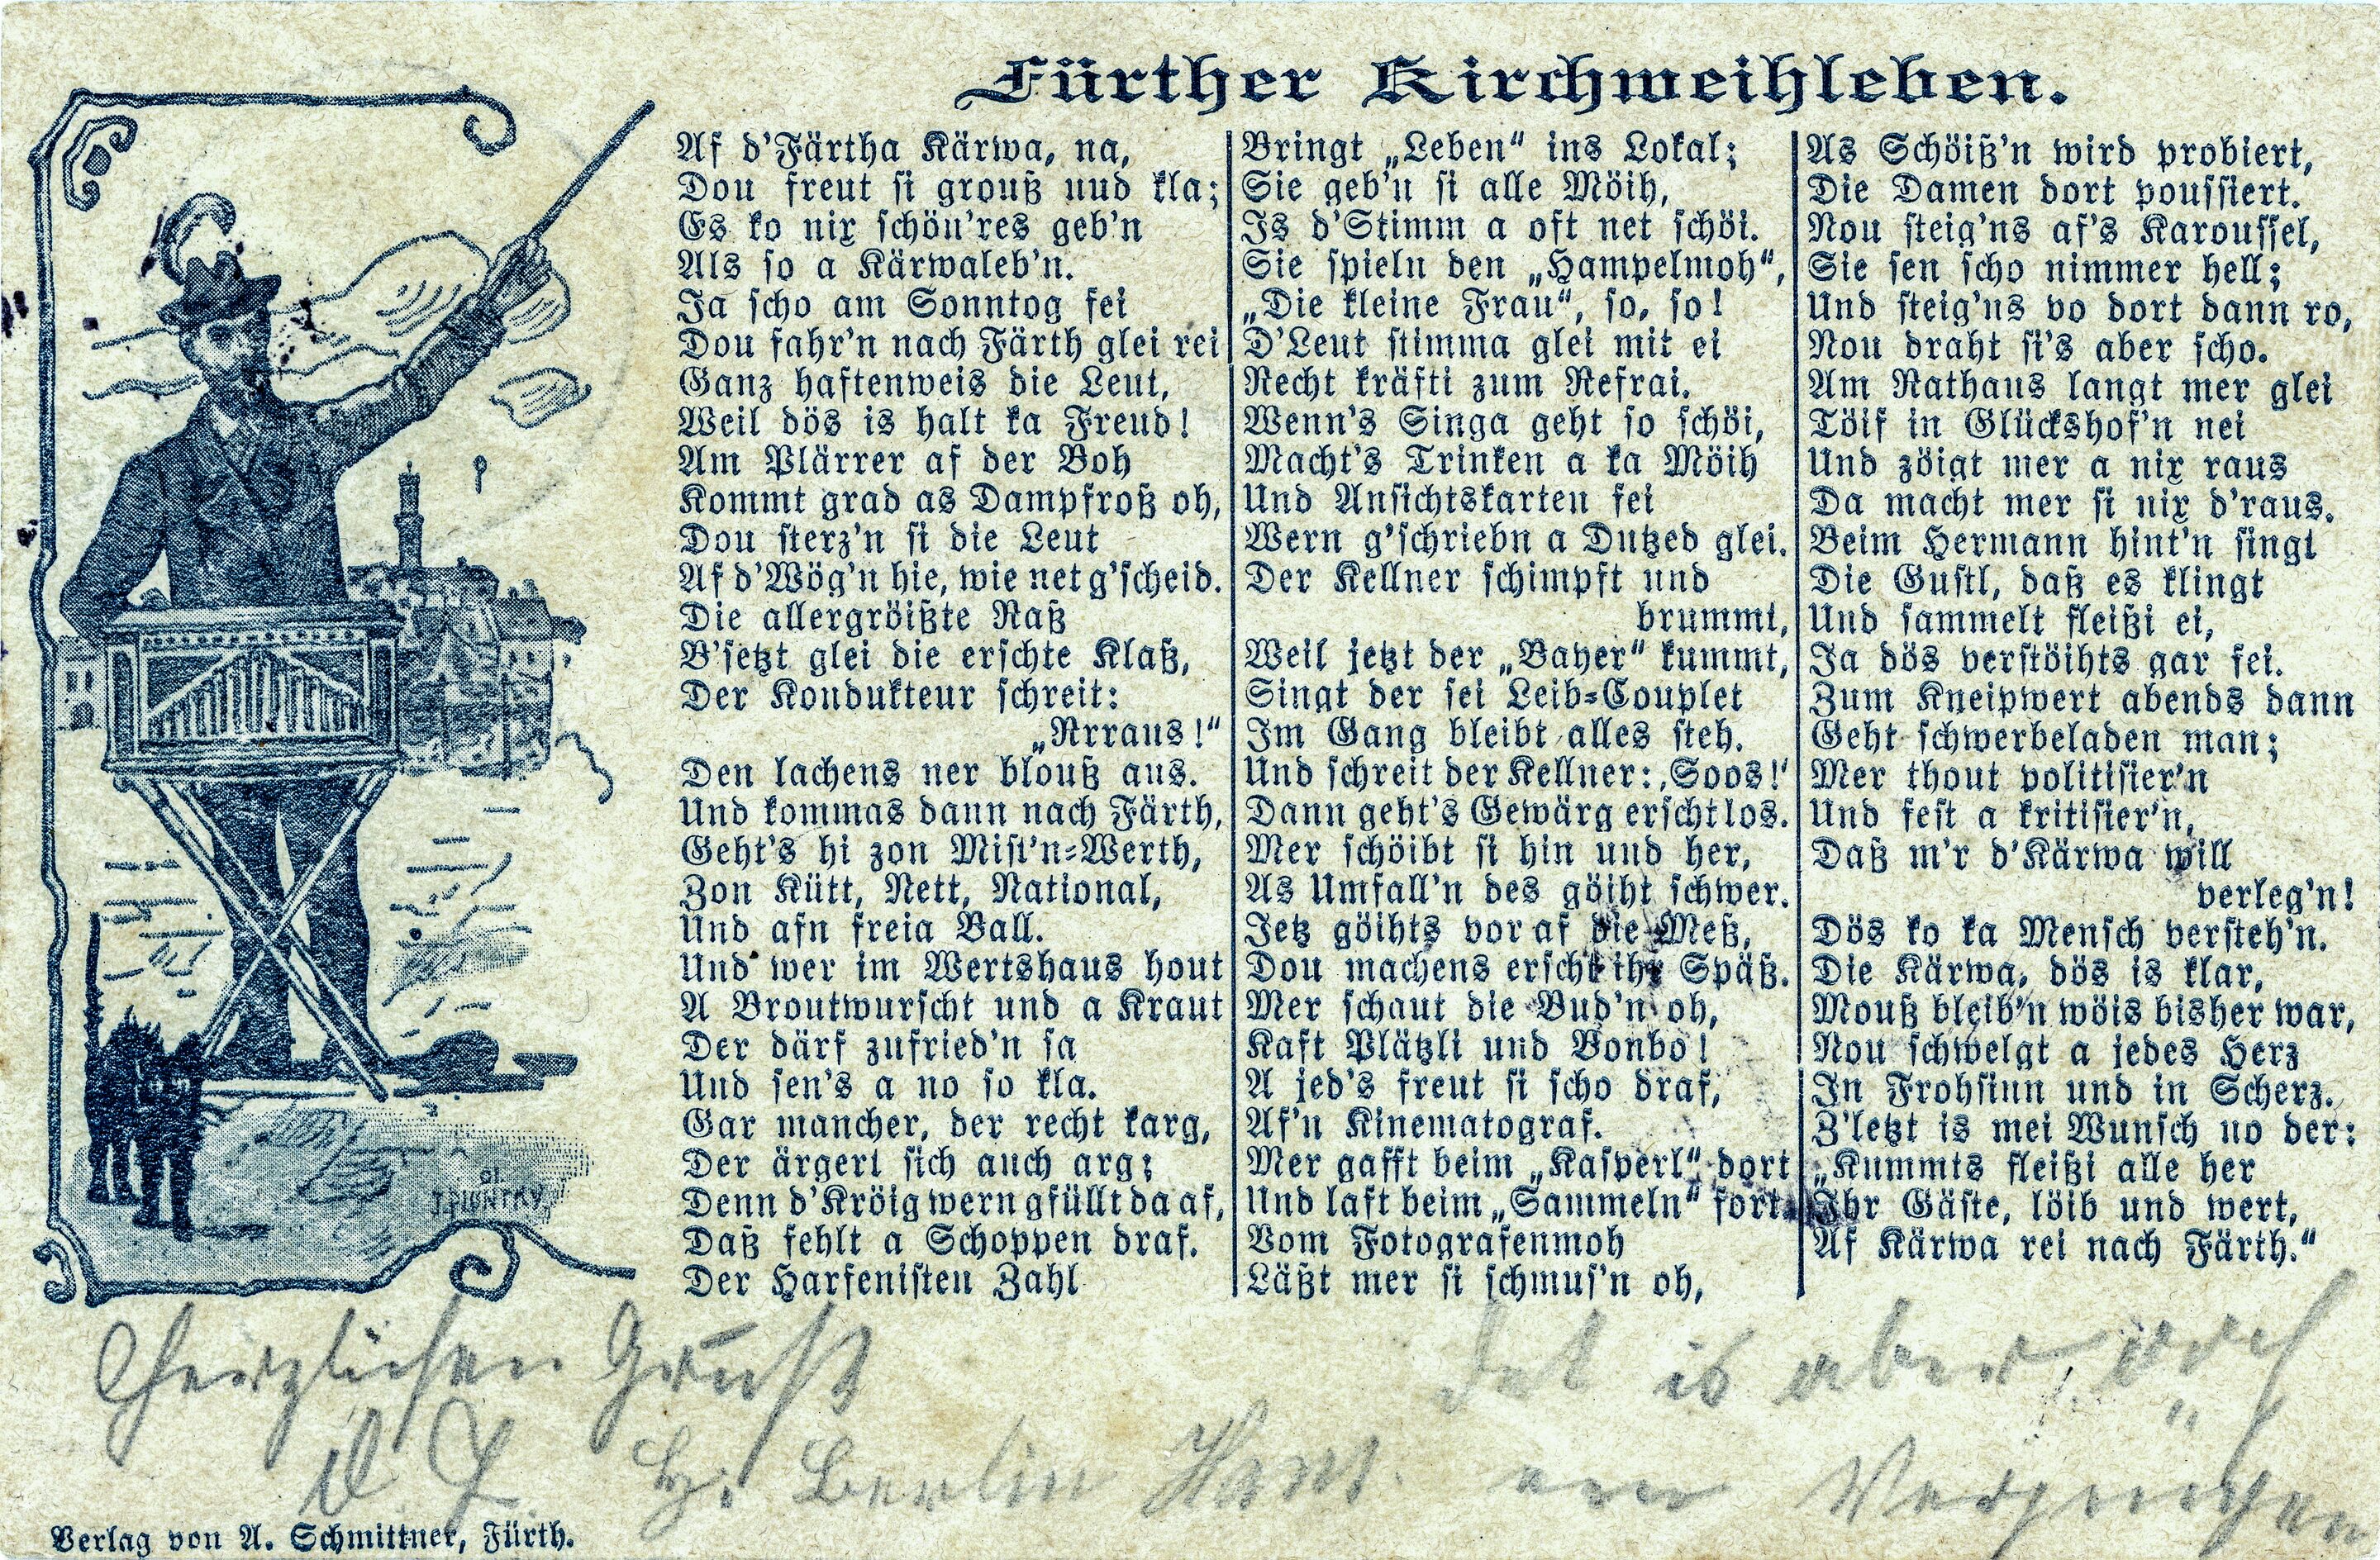 Fürther Kirchweihleben.
Af d'Färtha Kärwa, na,
Dou freut si grouß und kla;
Es ko nix schön'res geb'n
Als so a Kärwaleb'n.
Ja scho am Sonntog fei
Dou fahr'n nach Färth glei rei
Ganz haftenweis die Leut,
Weil dös is halt ka Freud!
Am Plärrer af der Boh
Kommt grad as Dampfroß oh,
Dou sterz'n si die Leut
Af d'Wög'n hie, wie net g'scheid.
Die allergröißte Raß
B'setzt glei die erschte Klaß,
Der Kondukteur schreit:
„Rrraus!“
Den lachens ner blouß aus.
Und kommas dann nach Färth,
Geht's hi zon Mist'n-Werth,
Zon Kütt, Nett, National,
Und afn freia Ball.
Und wer im Wertshaus hout
A Broutwurscht und a Kraut
Der därf zufried'n sa
Und sen's a no so kla.
Gar mancher, der recht karg,
Der ärgert sich auch arg;
Denn d'Kröig wern gfüllt da af,
Daß fehlt a Schoppen draf.
Der Harfenisten Zahl
Bringt „Leben“ ins Lokal;
Sie geb'n si alle Möih,
Is d'Stimm a oft net schöi.
Sie spieln den „Hampelmoh“,
„Die kleine Frau“, so, so!
D'Leut stimma glei mit ei
Recht kräfti zum Refrai.
Wenn's Singa geht so schöi,
Macht's Trinken a ka Möih
Und Ansichtskarten fei
Wern g'schriebn a Dutzed glei.
Der Kellner schimpft und
brummt,
Weil jetzt der „Bayer“ kummt,
Singt der sei Leib-Couplet
Im Gang bleibt alles steh.
Und schreit der Kellner: ‚Soos!‘
Dann geht's Gewärg erscht los.
Mer schöibt si hin und her,
As Umfall'n des göiht schwer.
Jetz göihts vor af die Meß,
Dou machens erscht ihr Späß.
Mer schaut die Bud'n oh,
Kaft Plätzli und Bonbo!
A jed's freut si scho draf,
Af'n Kinematograf.
Mer gafft beim „Kasperl“ dort
Und laft beim „Sammeln“ fort.
Vom Fotografenmoh
Läßt mer si schmus'n oh,
As Schöiß'n wird probiert,
Die Damen dort poussiert.
Nou steig'ns af's Karoussel,
Sie sen scho nimmer hell;
Und steig'ns vo dort dann ro,
Nou draht si's aber scho.
Am Rathaus langt mer glei
Töif in Glückshof'n nei
Und zöigt mer a nix raus
Da macht mer si nix d'raus.
Beim Hermann hint'n singt
Die Gustl, daß es klingt
Und sammelt fleißi ei,
Ja dös verstöihts gar fei.
Zum Kneipwert abends dann
Geht schwerbeladen man;
Mer thout politisier'n
Und fest a kritisier'n,
Daß m'r d'Kärwa will
verleg'n!
Dös ko ka Mensch versteh'n.
Die Kärwa, dös is klar,
Mouß bleib'n wöis bisher war,
Nou schwelgt a jedes Herz
In Frohsinn und in Scherz.
Z'letzt is mei Wunsch no der:
„Kummts fleißi alle her
Ihr Gäste, löib und wert,
Af Kärwa rei nach Färth.“
Herzlichen Gruß
Det is aber
Berlin
Vergnügen
Verlag von A. Schmittner, Fürth.